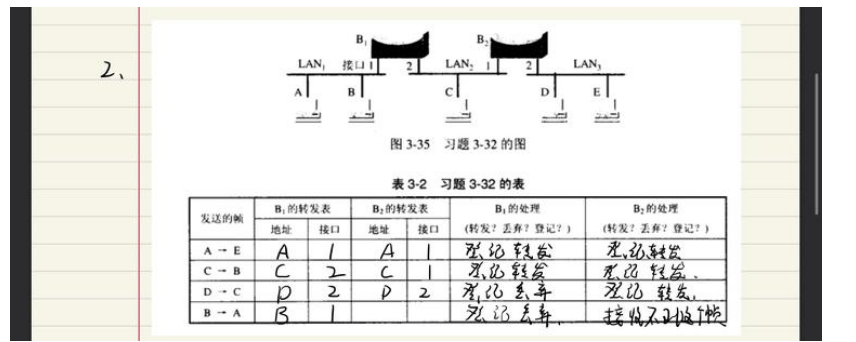 2、
B₁ B₂
LAN₁ 接口 1 2 LAN₂ 1 2 LAN₃
A B C D E
图 3-35 习题 3-32 的图
表 3-2 习题 3-32 的表
发送的帧 B₁的转发表 B₂的转发表 B₁的处理 B₂的处理
地址 接口 地址 接口 (转发?丢弃?登记?) (转发?丢弃?登记?)
A → E A 1 A 1 登记 转发 登记转发
C → B C 2 C 1 登记 转发 登记 转发.
D → C D 2 D 2 登记 丢弃 登记 转发.
B → A B 1 登记 丢弃. 接收不到这个帧